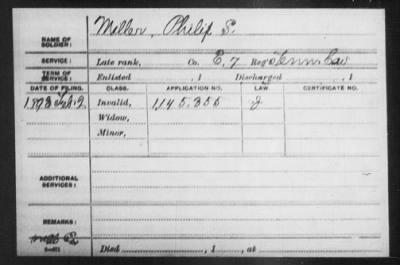 NAME OF SOLDIER: Mellon, Philip S.
SERVICE: Late rank, Co. E, 7 Reg't Tenn. Cav
TERM OF SERVICE: Enlisted , 1 Discharged , 1
DATE OF FILING. CLASS. APPLICATION NO. LAW. CERTIFICATE NO.
1893 Invalid, 1145.355 J
Widow,
Minor,
ADDITIONAL SERVICES:
REMARKS:
Died , 1 , at